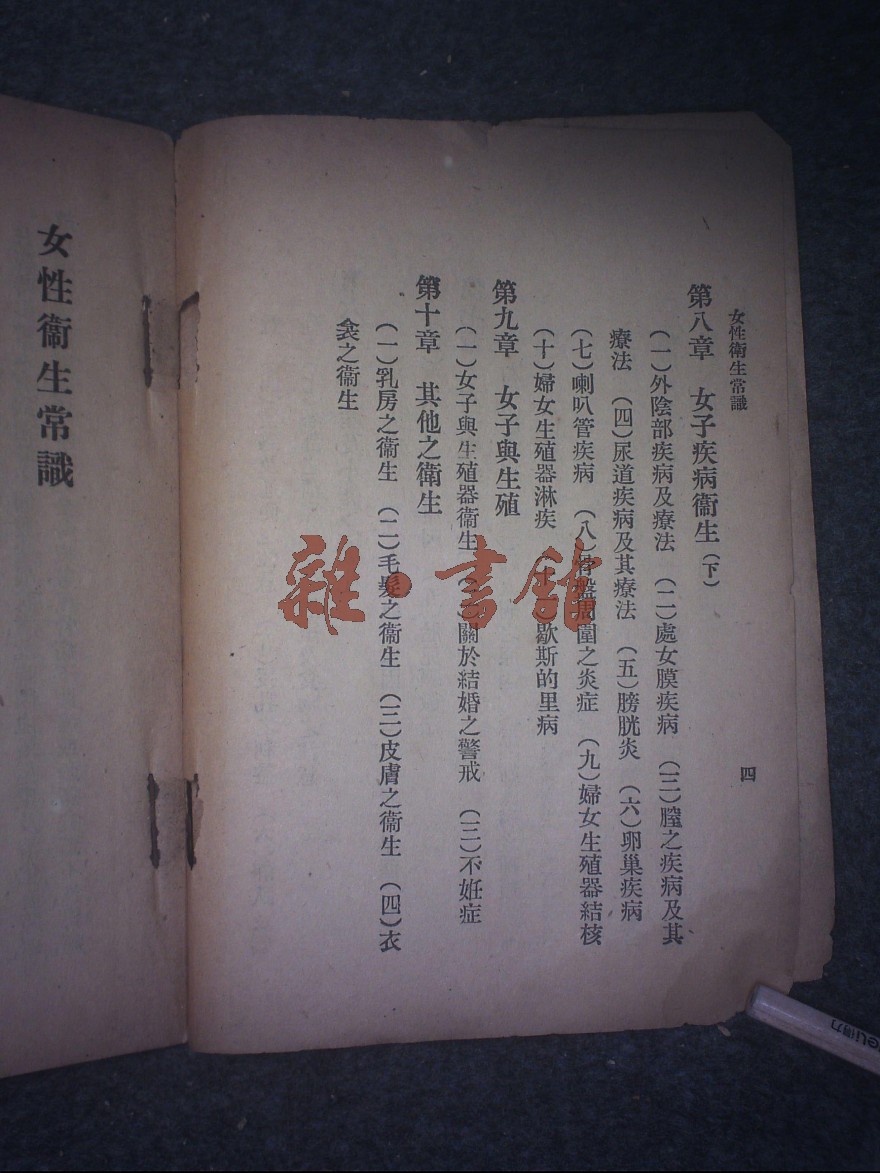 女性衞生常識
四
第八章　女子疾病衞生（下）
（一）外陰部疾病及療法　（二）處女膜疾病　（三）膣之疾病及其
療法　（四）尿道疾病及其療法　（五）膀胱炎　（六）卵巢疾病
（七）喇叭管疾病　（八）骨盤周圍之炎症　（九）婦女生殖器結核
（十）婦女生殖器淋疾　歇斯的里病
第九章　女子與生殖
（一）女子與生殖器衞生　關於結婚之警戒　（三）不姙症
第十章　其他之衞生
（一）乳房之衞生　（二）毛髮之衞生　（三）皮膚之衞生　（四）衣
衾之衞生
女性衞生常識
雜·書館
得力